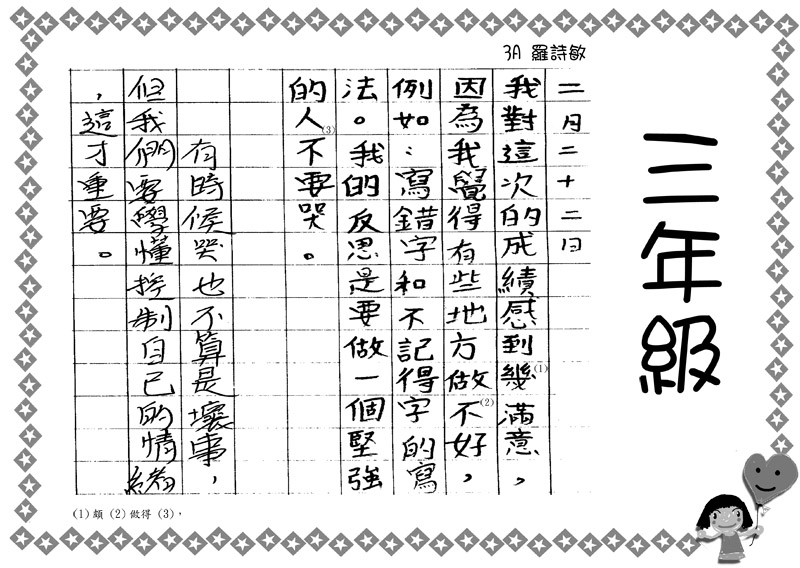 三年級
3A 羅詩敏
二月二十二日
我對這次的成績感到幾(1)滿意，
因為我覺得有些地方做(2)不好，
例如：寫錯字和不記得字的寫
法。我的反思是要做一個堅強
的人(3)不要哭。
有時候哭也不算是壞事，
但我們要學懂控制自己的情緒
，這才重要。
(1) 頗 (2) 做得 (3) ，